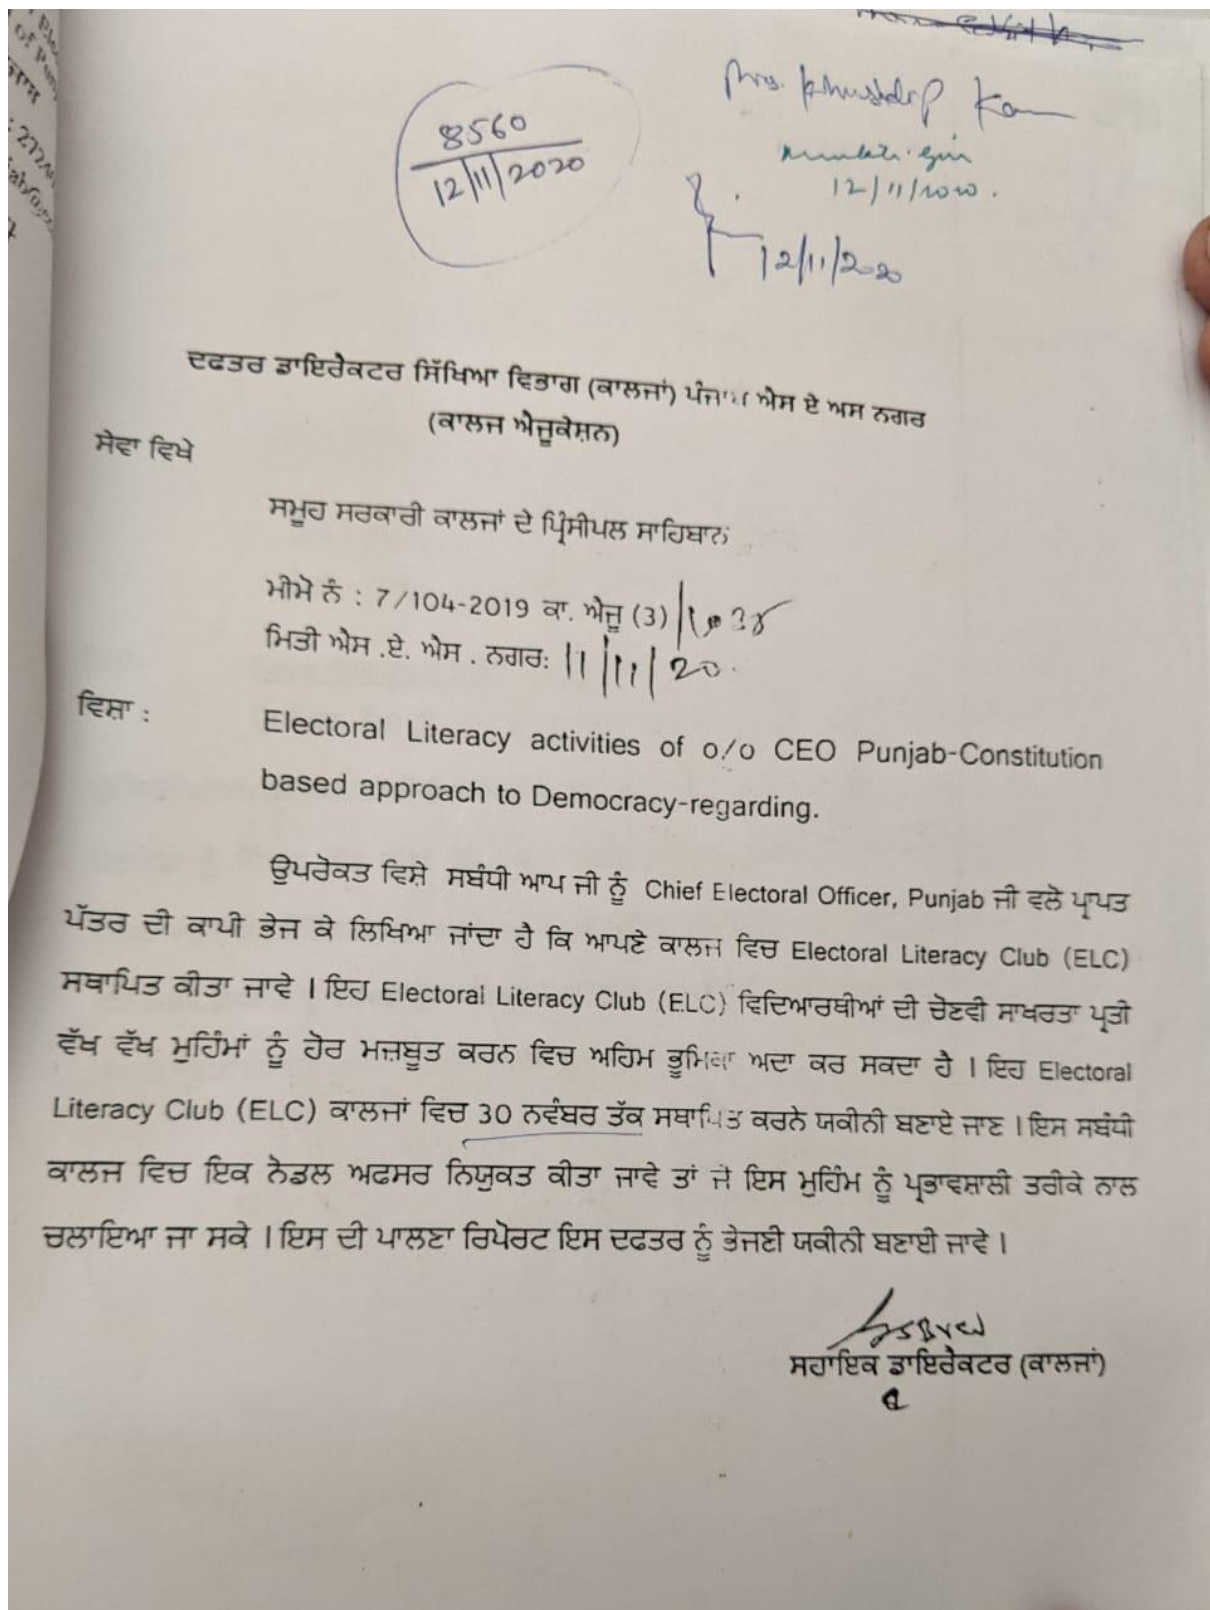 8560
12/11/2020
Mrs. Khushdip Kaur
12/11/2020.
12/11/2020
ਦਫਤਰ ਡਾਇਰੈਕਟਰ ਸਿੱਖਿਆ ਵਿਭਾਗ (ਕਾਲਜਾਂ) ਪੰਜਾਬ ਐਸ ਏ ਅਸ ਨਗਰ
(ਕਾਲਜ ਐਜੂਕੇਸ਼ਨ)
ਸੇਵਾ ਵਿਖੇ
ਸਮੂਹ ਸਰਕਾਰੀ ਕਾਲਜਾਂ ਦੇ ਪ੍ਰਿੰਸੀਪਲ ਸਾਹਿਬਾਨ
ਮੀਮੋ ਨੰ : 7/104-2019 ਕਾ. ਐਜੂ (3)
ਮਿਤੀ ਐਸ .ਏ. ਐਸ . ਨਗਰ: 11/11/20.
ਵਿਸ਼ਾ : Electoral Literacy activities of o/o CEO Punjab-Constitution
based approach to Democracy-regarding.
ਉਪਰੋਕਤ ਵਿਸ਼ੇ ਸਬੰਧੀ ਆਪ ਜੀ ਨੂੰ Chief Electoral Officer, Punjab ਜੀ ਵਲੋ ਪ੍ਰਾਪਤ
ਪੱਤਰ ਦੀ ਕਾਪੀ ਭੇਜ ਕੇ ਲਿਖਿਆ ਜਾਂਦਾ ਹੈ ਕਿ ਆਪਣੇ ਕਾਲਜ ਵਿਚ Electoral Literacy Club (ELC)
ਸਥਾਪਿਤ ਕੀਤਾ ਜਾਵੇ । ਇਹ Electoral Literacy Club (ELC) ਵਿਦਿਆਰਥੀਆਂ ਦੀ ਚੋਣਵੀ ਸਾਖਰਤਾ ਪ੍ਰਤੀ
ਵੱਖ ਵੱਖ ਮੁਹਿੰਮਾਂ ਨੂੰ ਹੋਰ ਮਜ਼ਬੂਤ ਕਰਨ ਵਿਚ ਅਹਿਮ ਭੂਮਿਕਾ ਅਦਾ ਕਰ ਸਕਦਾ ਹੈ । ਇਹ Electoral
Literacy Club (ELC) ਕਾਲਜਾਂ ਵਿਚ 30 ਨਵੰਬਰ ਤੱਕ ਸਥਾਪਿਤ ਕਰਨੇ ਯਕੀਨੀ ਬਣਾਏ ਜਾਣ । ਇਸ ਸਬੰਧੀ
ਕਾਲਜ ਵਿਚ ਇਕ ਨੋਡਲ ਅਫਸਰ ਨਿਯੁਕਤ ਕੀਤਾ ਜਾਵੇ ਤਾਂ ਜੋ ਇਸ ਮੁਹਿੰਮ ਨੂੰ ਪ੍ਰਭਾਵਸ਼ਾਲੀ ਤਰੀਕੇ ਨਾਲ
ਚਲਾਇਆ ਜਾ ਸਕੇ । ਇਸ ਦੀ ਪਾਲਣਾ ਰਿਪੋਰਟ ਇਸ ਦਫਤਰ ਨੂੰ ਭੇਜਣੀ ਯਕੀਨੀ ਬਣਾਈ ਜਾਵੇ ।
ਸਹਾਇਕ ਡਾਇਰੈਕਟਰ (ਕਾਲਜਾਂ)